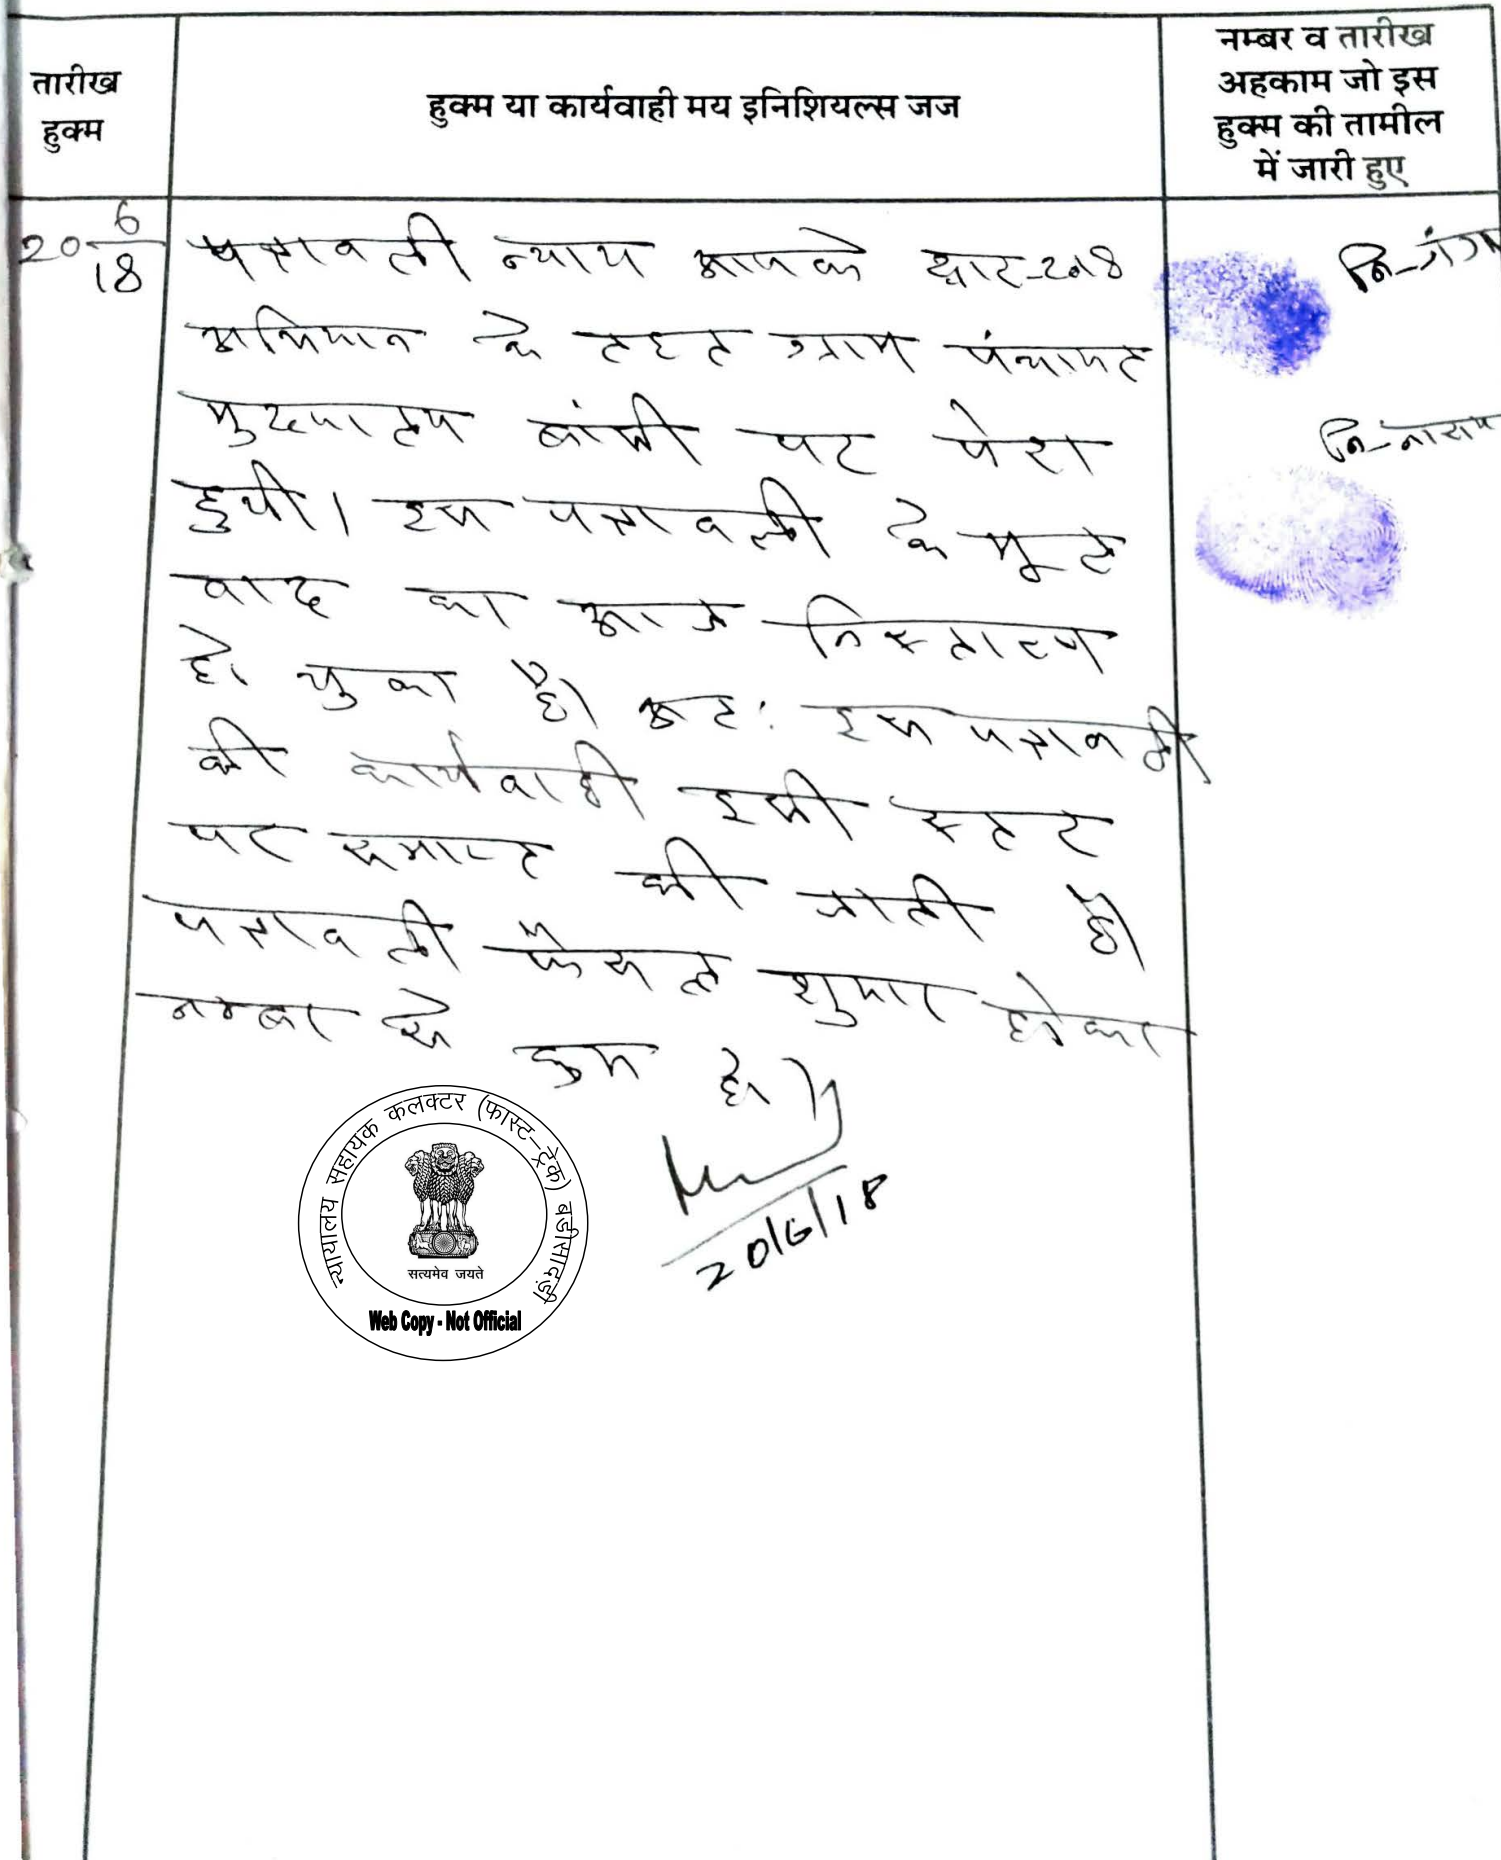 तारीख
हुक्म
हुक्म या कार्यवाही मय इनिशियल्स जज
नम्बर व तारीख
अहकाम जो इस
हुक्म की तामील
में जारी हुए
20 6/18
पत्रावली न्याय आपके द्वार-2018
अभियान के तहत ग्राम पंचायत
मुख्यालय बांसी पर पेश
हुयी। इस पत्रावली के मूल
वाद का आज निस्तारण
हो चुका है। अतः इस पत्रावली
की कार्यवाही इसी स्तर
पर समाप्त की जाती है।
पत्रावली फैसल शुमार होकर
नम्बर से कम हो।
20/6/18
नि-गंगा
नि-
न्यायालय सहायक कलक्टर (फास्ट-ट्रेक) बडीसादड़ी
सत्यमेव जयते
Web Copy - Not Official